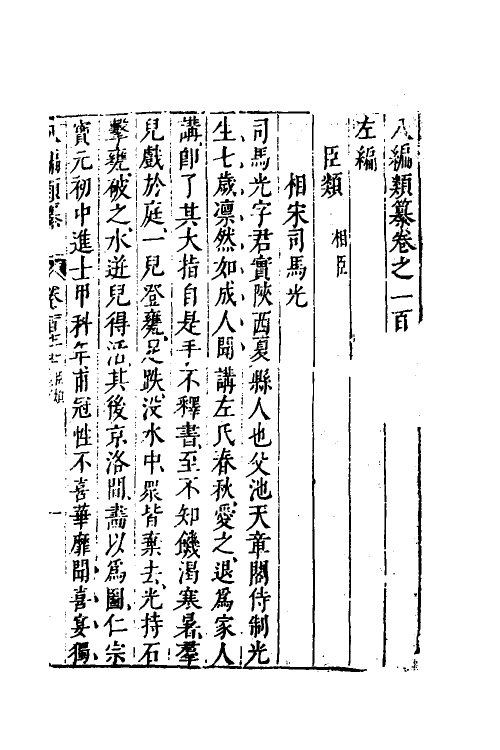 八編類纂卷之一百
左編
臣類 相臣
相宋司馬光
司馬光字君實陝西夏縣人也父池天章閣侍制光
生七歲凛然如成人聞講左氏春秋愛之退爲家人
講卽了其大指自是手不釋書至不知饑渴寒暑羣
兒戲於庭一兒登甕足跌没水中衆皆棄去光持石
擊甕破之水迸兒得活其後京洛間畵以爲圖仁宗
寳元初中進士甲科年甫冠性不喜華靡聞喜宴獨
八編類纂 卷百 臣類 一